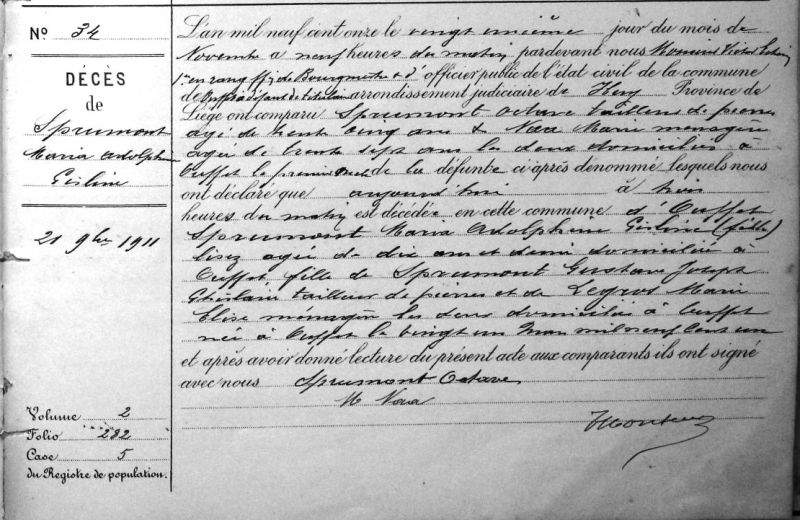 N° 34
DÉCÈS
de
Sprumont
Maria Adolphine
Gisline
21 9bre 1911
Volume 2
Folio 282
Case 5
du Registre de population.
L'an mil neuf cent onze le vingt unième jour du mois de
Novembre à neuf heures du matin pardevant nous
officier public de l'état civil de la commune
de Ouffet arrondissement judiciaire de Huy Province de
Liège ont comparu Sprumont Octave tailleur de pierres
agé de trente cinq ans & Nova Marie ménagère
agée de trente sept ans les deux domiciliés à
Ouffet le premier de la défunte ci après dénommé lesquels nous
ont déclaré que aujourd'hui à trois
heures du matin est décédée en cette commune d'Ouffet
Sprumont Maria Adolphine Gisline (fille)
agée de dix ans et demi domiciliée à
Ouffet fille de Sprumont Gustave Joseph
Ghislain tailleur de pierres et de Legros Marie
Elise ménagère les deux domiciliés à Ouffet
née à Ouffet le vingt un Mai mil neuf cent un
et après avoir donné lecture du présent acte aux comparants ils ont signé
avec nous Sprumont Octave
M Nova